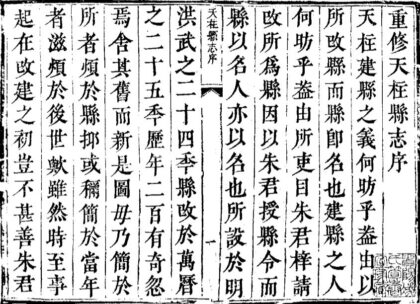 重修天柱縣志序
天柱建縣之義何昉乎葢由以
所攺縣而縣即名也建縣之人
何昉乎葢由所吏目朱君梓請
攺所爲縣因以朱君授縣令而
縣以名人亦以名也所設於明
天柱縣志序
一
洪武之二十四季縣攺於萬曆
之二十五季歷年二百有奇忽
焉舍其舊而新是圖毋乃簡於
所者煩於縣抑或稱簡於當年
者滋煩於後世歟雖然時至事
起在攺建之初豈不甚善朱君